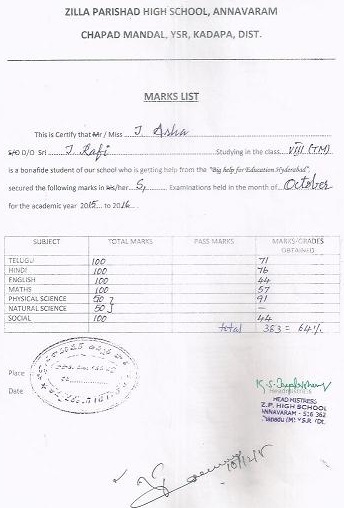 ZILLA PARISHAD HIGH SCHOOL, ANNAVARAM
CHAPAD MANDAL, YSR, KADAPA, DIST.
MARKS LIST
This is Certify that Mr / Miss J. Asha
S/O D/O Sri J. Rafi Studying in the class VIII (TM)
is a bonafide student of our school who is getting help from the "Big help for Education Hyderabad",
secured the following marks in his/her S1 Examinations held in the month of October
for the academic year 2015 to 2016
SUBJECT TOTAL MARKS PASS MARKS MARKS-GRADES OBTAINED
TELUGU 100 71
HINDI 100 76
ENGLISH 100 44
MATHS 100 57
PHYSICAL SCIENCE 50 91
NATURAL SCIENCE 50 —
SOCIAL 100 44
total 383 = 64%
Place
Date
HEAD MISTRESS
Z.P. HIGH SCHOOL
ANNAVARAM - 516 362
Chapadu (M) Y.S.R (Dt.